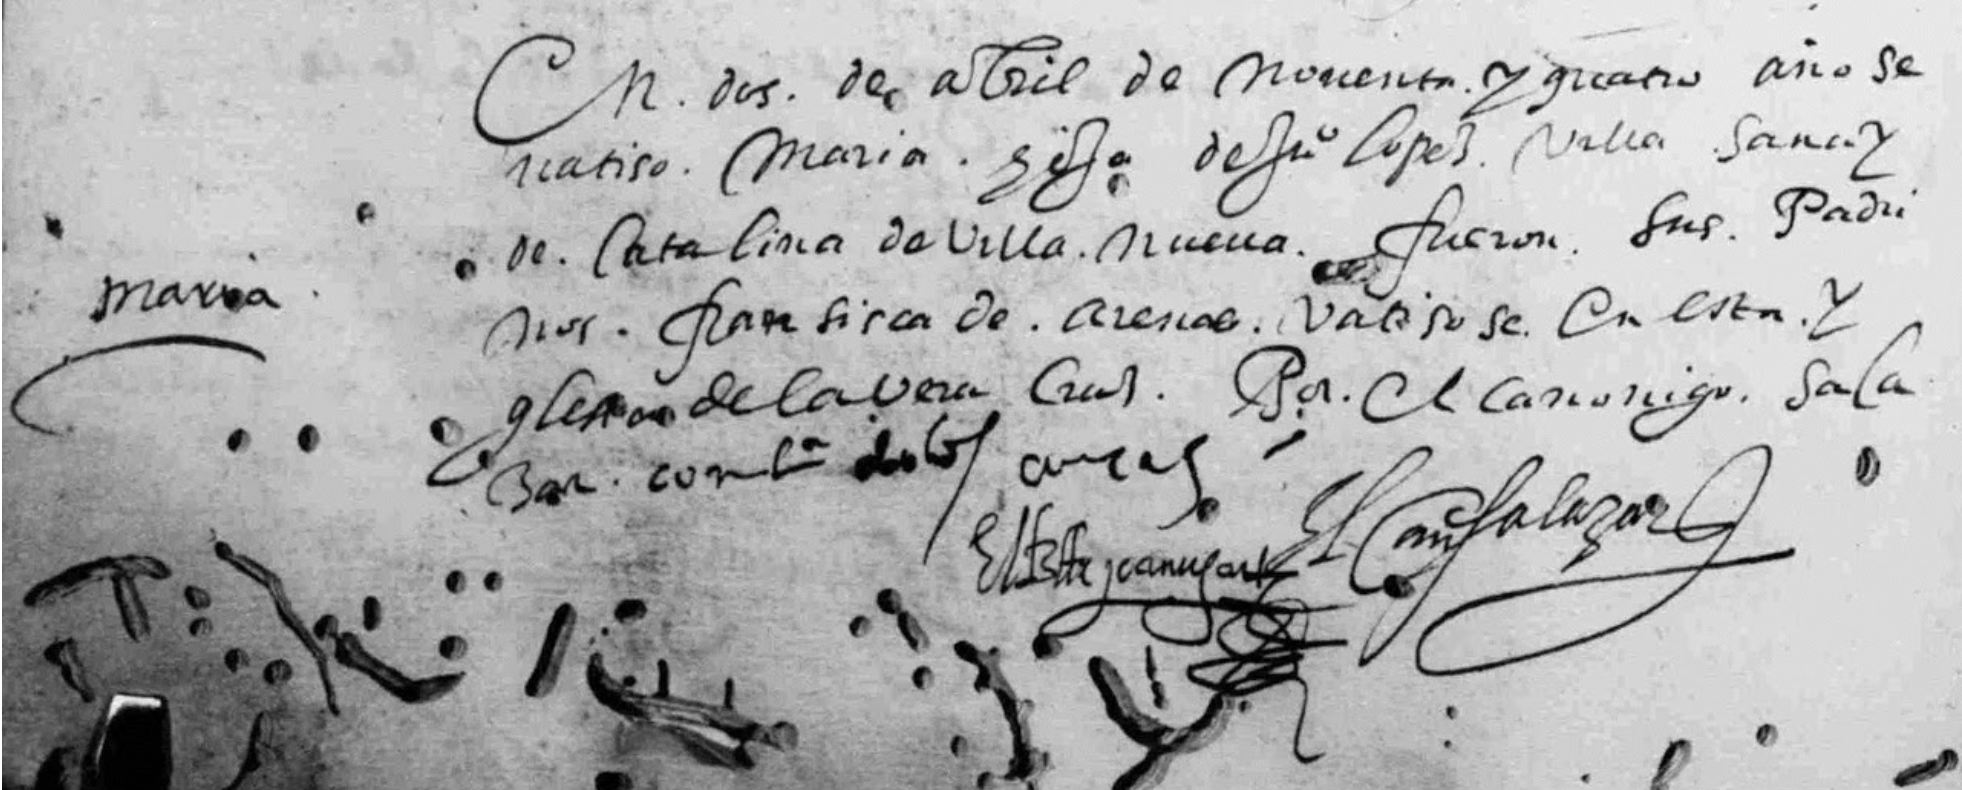 En. dos. de, abril de nouenta. y quatro año se
vatiso. Maria. hija de Juº lopes. Villa Sana y
de. Catalina de Villa. nueua. fueron. sus. Padri
maria
nos. fransisca de. arenas. vatisose. En esta. y
glesia de la Vera Crus. Por. El canonigo. Sala
zar. con
El Canº Salazar